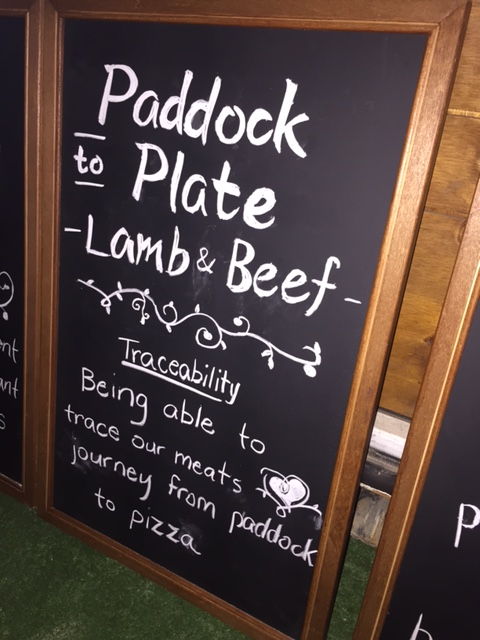 Paddock
to Plate
-Lamb & Beef-
Traceability
Being able to
trace our meats
journey from paddock
to pizza